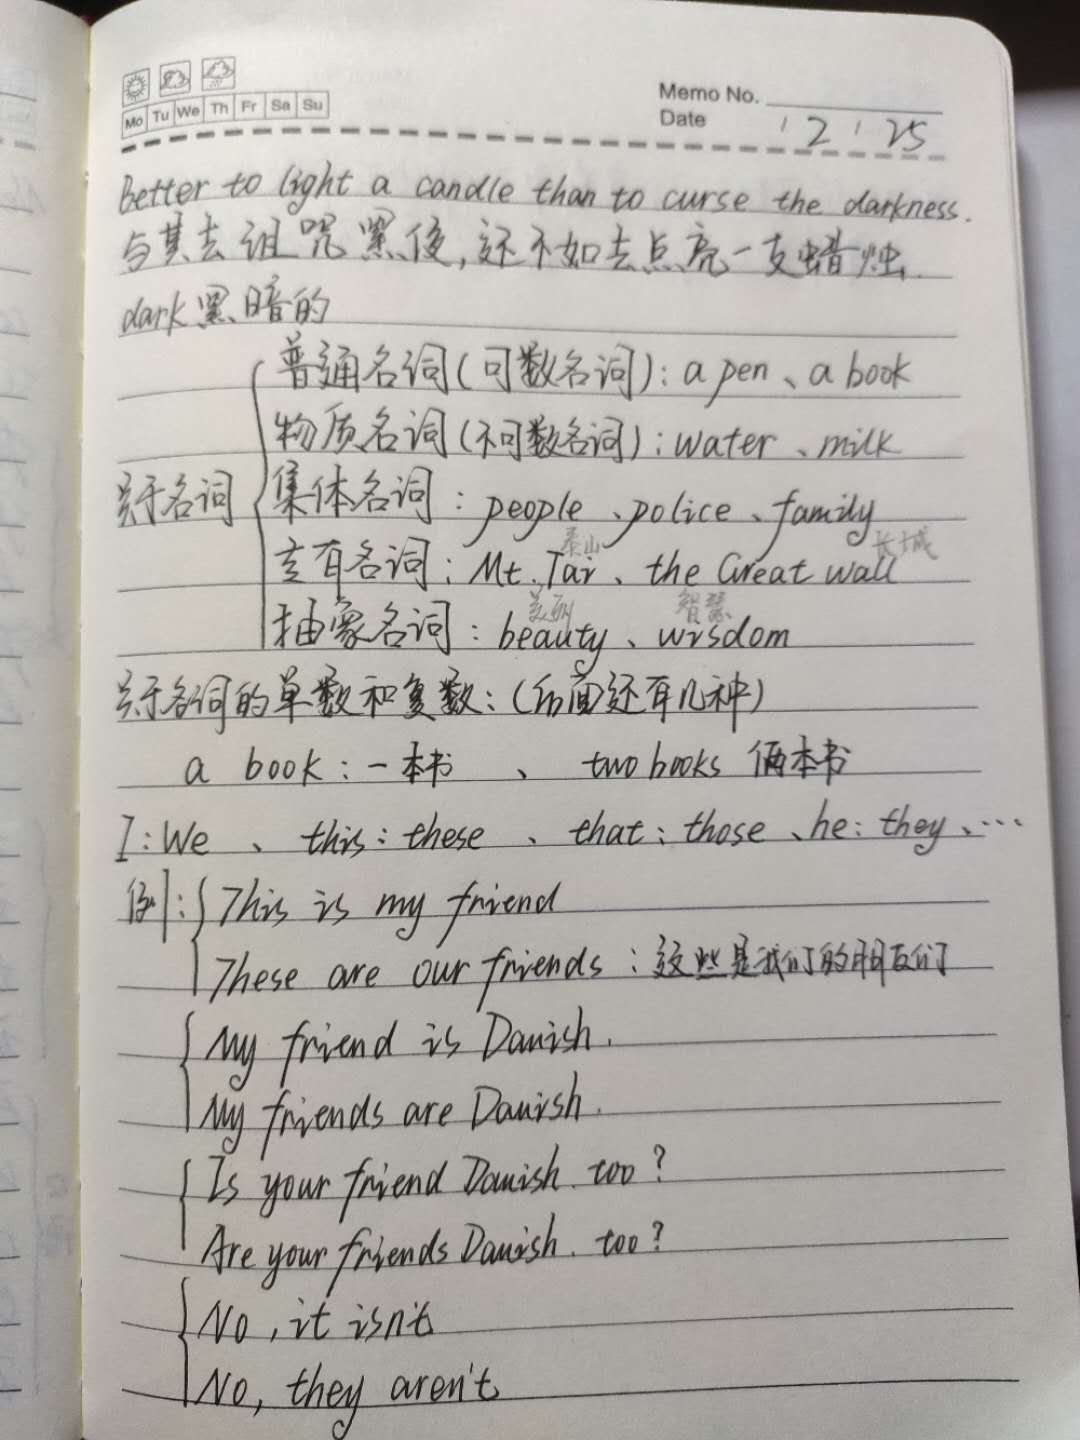 Mo Tu We Th Fr Sa Su
Memo No.
Date 2 25
Better to light a candle than to curse the darkness.
与其去诅咒黑夜,还不如去点亮一支蜡烛.
dark 黑暗的
普通名词(可数名词): a pen、a book
物质名词(不可数名词): water、milk
关于名词
集体名词: people、police、family
泰山 长城
专有名词: Mt. Tai、the Great wall
美丽 智慧
抽象名词: beauty、wisdom
关于名词的单数和复数:(后面还有几种)
a book: 一本书、two books 俩本书
I: We、this: these、that: those、he: they、…
例: This is my friend
These are our friends: 这些是我们的朋友们
My friend is Danish.
My friends are Danish.
Is your friend Danish. too?
Are your friends Danish. too?
No, it isn't
No, they aren't